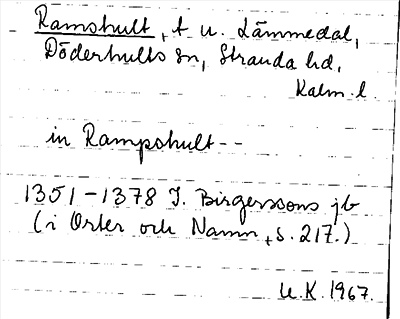 Ramshult, t u. Lämmedal,
Döderhults sn, Stranda hd,
Kalm. l.
in Rampshult--
1351-1378 I. Birgerssons jb
(i Orter och Namn, s. 217.)
U.K. 1967.